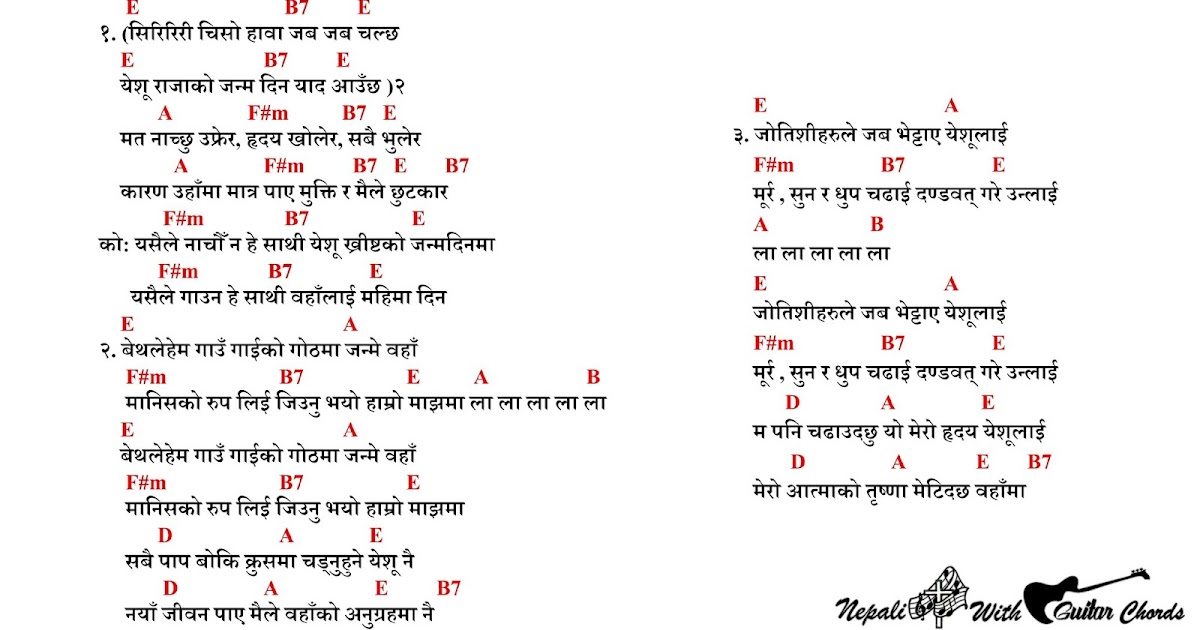 E B7 E
१. (सिरिरिरी चिसो हावा जब जब चल्छ
E B7 E
येशू राजाको जन्म दिन याद आउँछ )२
A F#m B7 E
मत नाच्छु उफ्रेर, हृदय खोलेर, सबै भुलेर
A F#m B7 E B7
कारण उहाँमा मात्र पाए मुक्ति र मैले छुटकार
F#m B7 E
को: यसैले नाचौँ न हे साथी येशू ख्रीष्टको जन्मदिनमा
F#m B7 E
यसैले गाउन हे साथी वहाँलाई महिमा दिन
E A
२. बेथलेहेम गाउँ गाईको गोठमा जन्मे वहाँ
F#m B7 E A B
मानिसको रुप लिई जिउनु भयो हाम्रो माझमा ला ला ला ला ला
E A
बेथलेहेम गाउँ गाईको गोठमा जन्मे वहाँ
F#m B7 E
मानिसको रुप लिई जिउनु भयो हाम्रो माझमा
D A E
सबै पाप बोकि क्रुसमा चड्नुहुने येशू नै
D A E B7
नयाँ जीवन पाए मैले वहाँको अनुग्रहमा नै
E A
३. जोतिशीहरुले जब भेट्टाए येशूलाई
F#m B7 E
मूर्र , सुन र धुप चढाई दण्डवत् गरे उन्लाई
A B
ला ला ला ला ला
E A
जोतिशीहरुले जब भेट्टाए येशूलाई
F#m B7 E
मूर्र , सुन र धुप चढाई दण्डवत् गरे उन्लाई
D A E
म पनि चढाउदछु यो मेरो हृदय येशूलाई
D A E B7
मेरो आत्माको तृष्णा मेटिदछ वहाँमा
Nepali With Guitar Chords